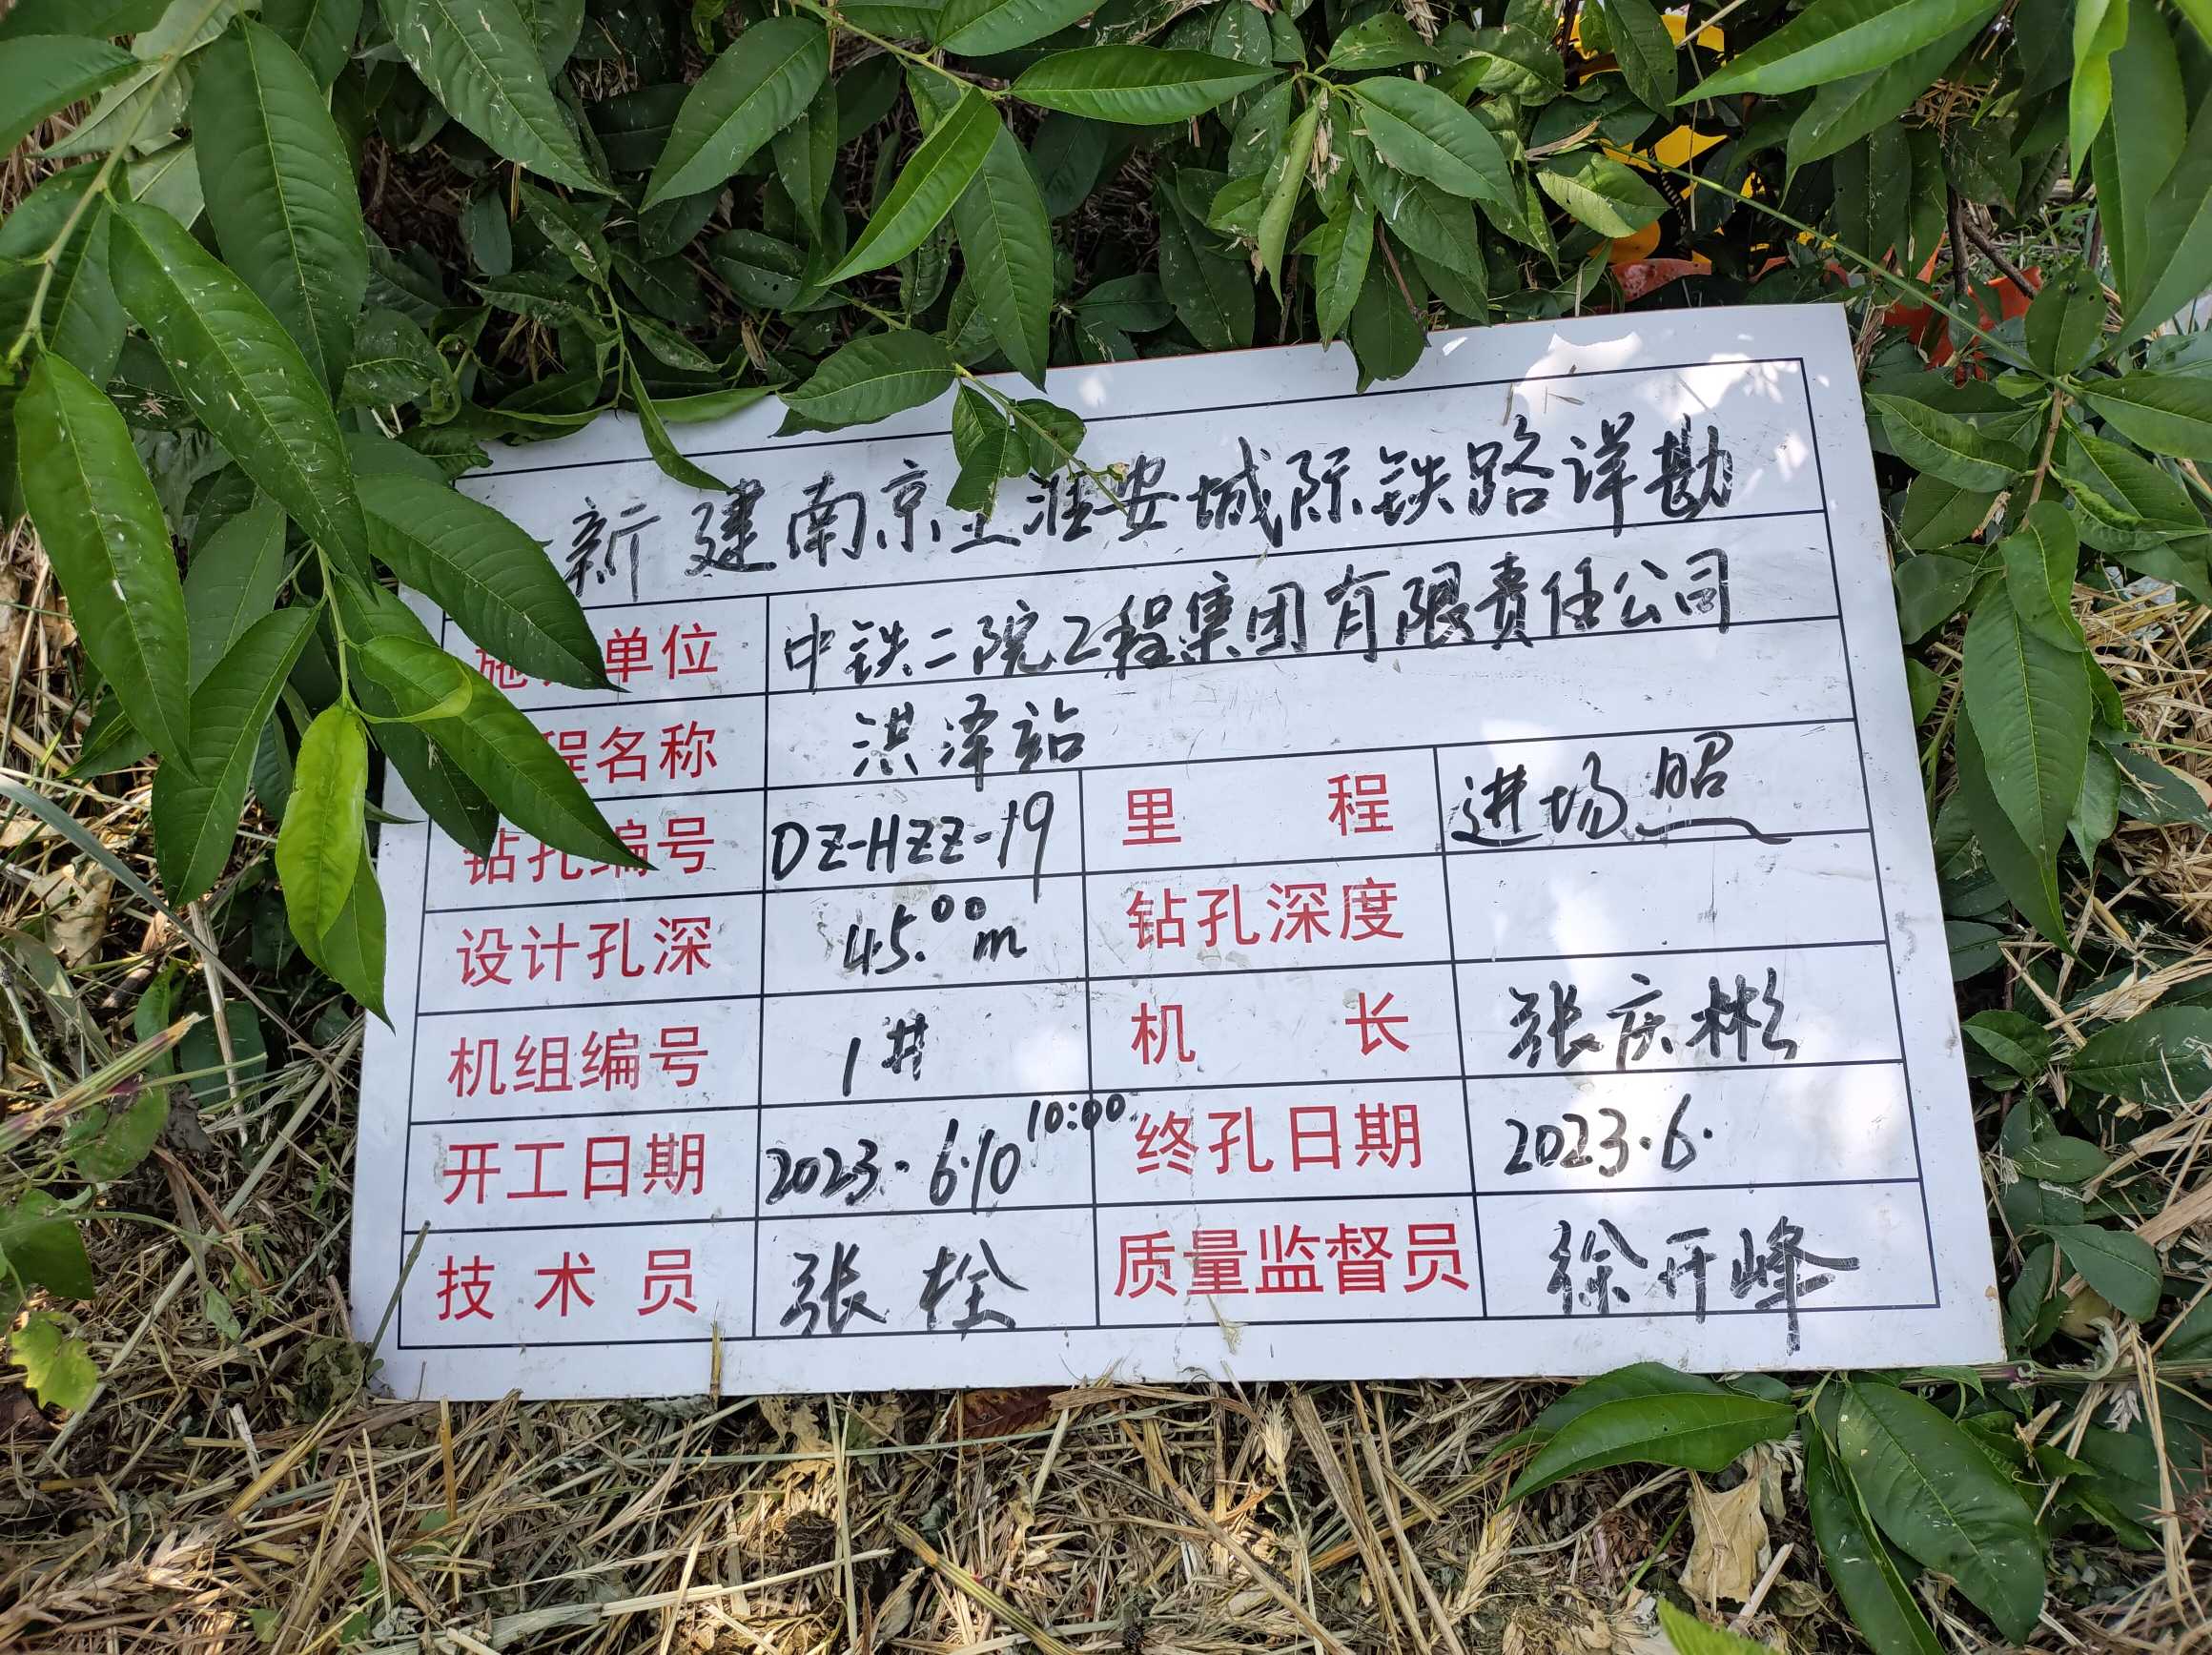 新建南京至淮安城际铁路详勘
施工单位 中铁二院工程集团有限责任公司
工程名称 洪泽站
钻孔编号 DZ-HZZ-19 里程 进场照
设计孔深 45.00m 钻孔深度
机组编号 1# 机长 张庆彬
开工日期 2023.6.10 10:00 终孔日期 2023.6.
技术员 张栓 质量监督员 徐开峰